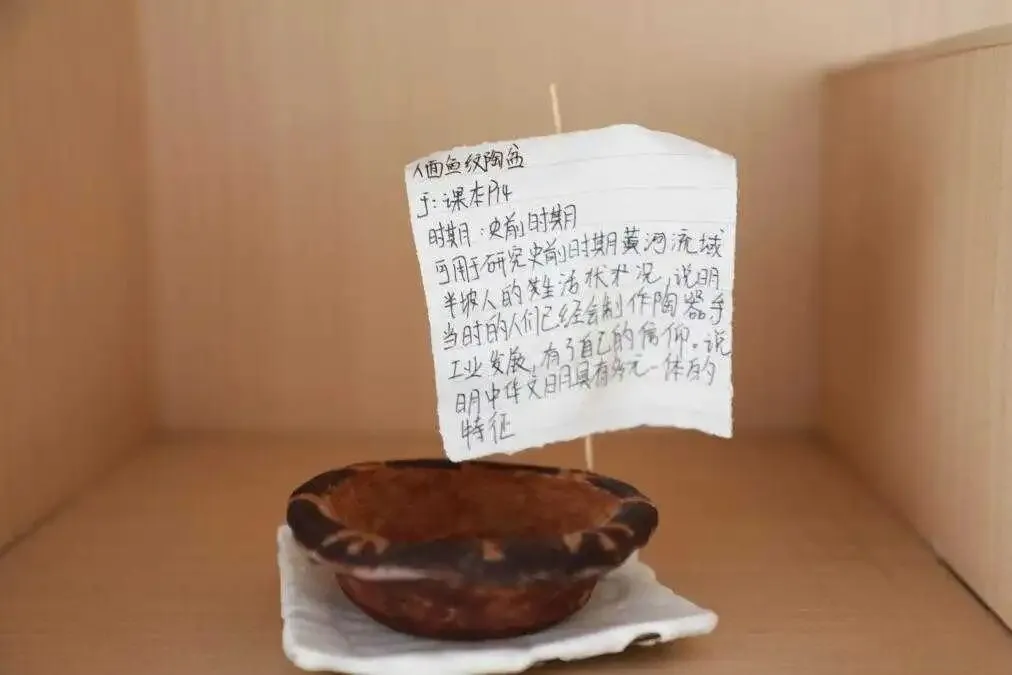 人面鱼纹陶盆
于:课本P14
时期:史前时期
可用于研究史前时期黄河流域
半坡人的生活状状况,说明
当时的人们已经会制作陶器手
工业发展,有了自己的信仰。说
明中华文明具有多元一体的
特征